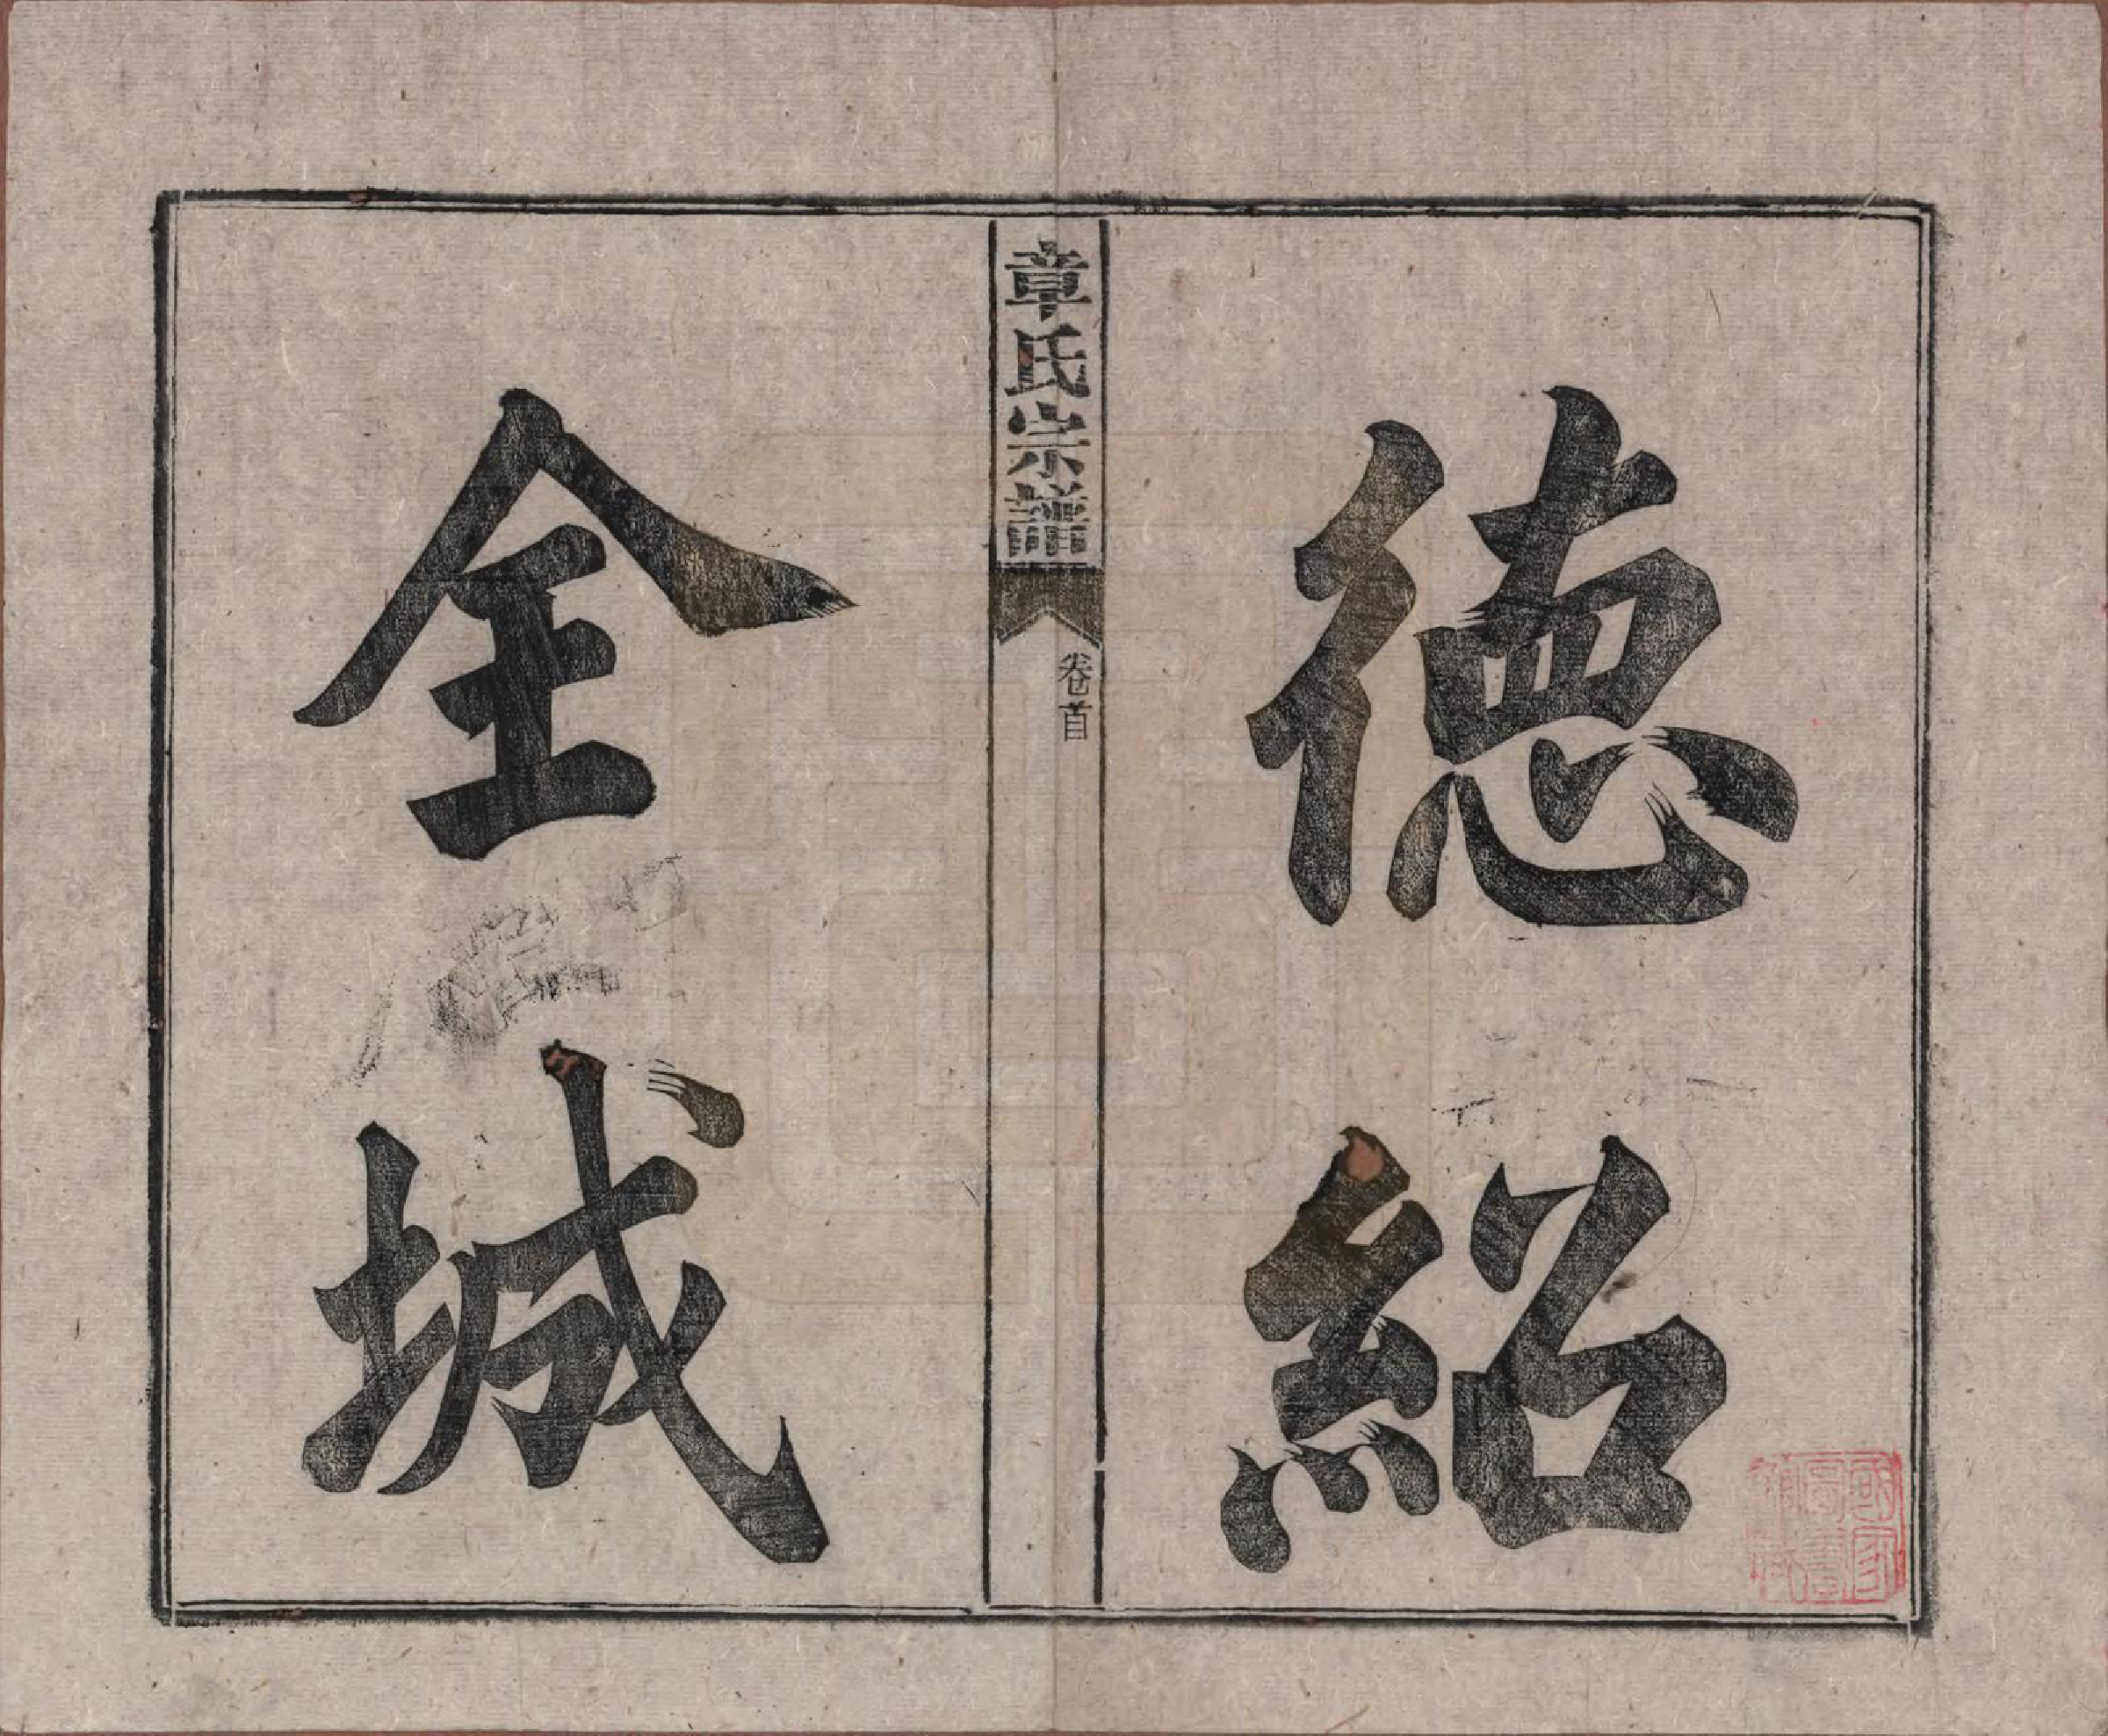 徳紹
章氏宗譜
卷首
全城